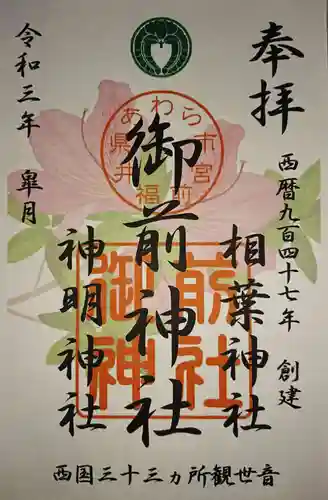 奉拝
西暦九百四十七年 創建
相葉神社
御前神社
神明神社
令和三年 皐月
西国三十三ヵ所観世音
あわら市宮前
福井県
御前神社